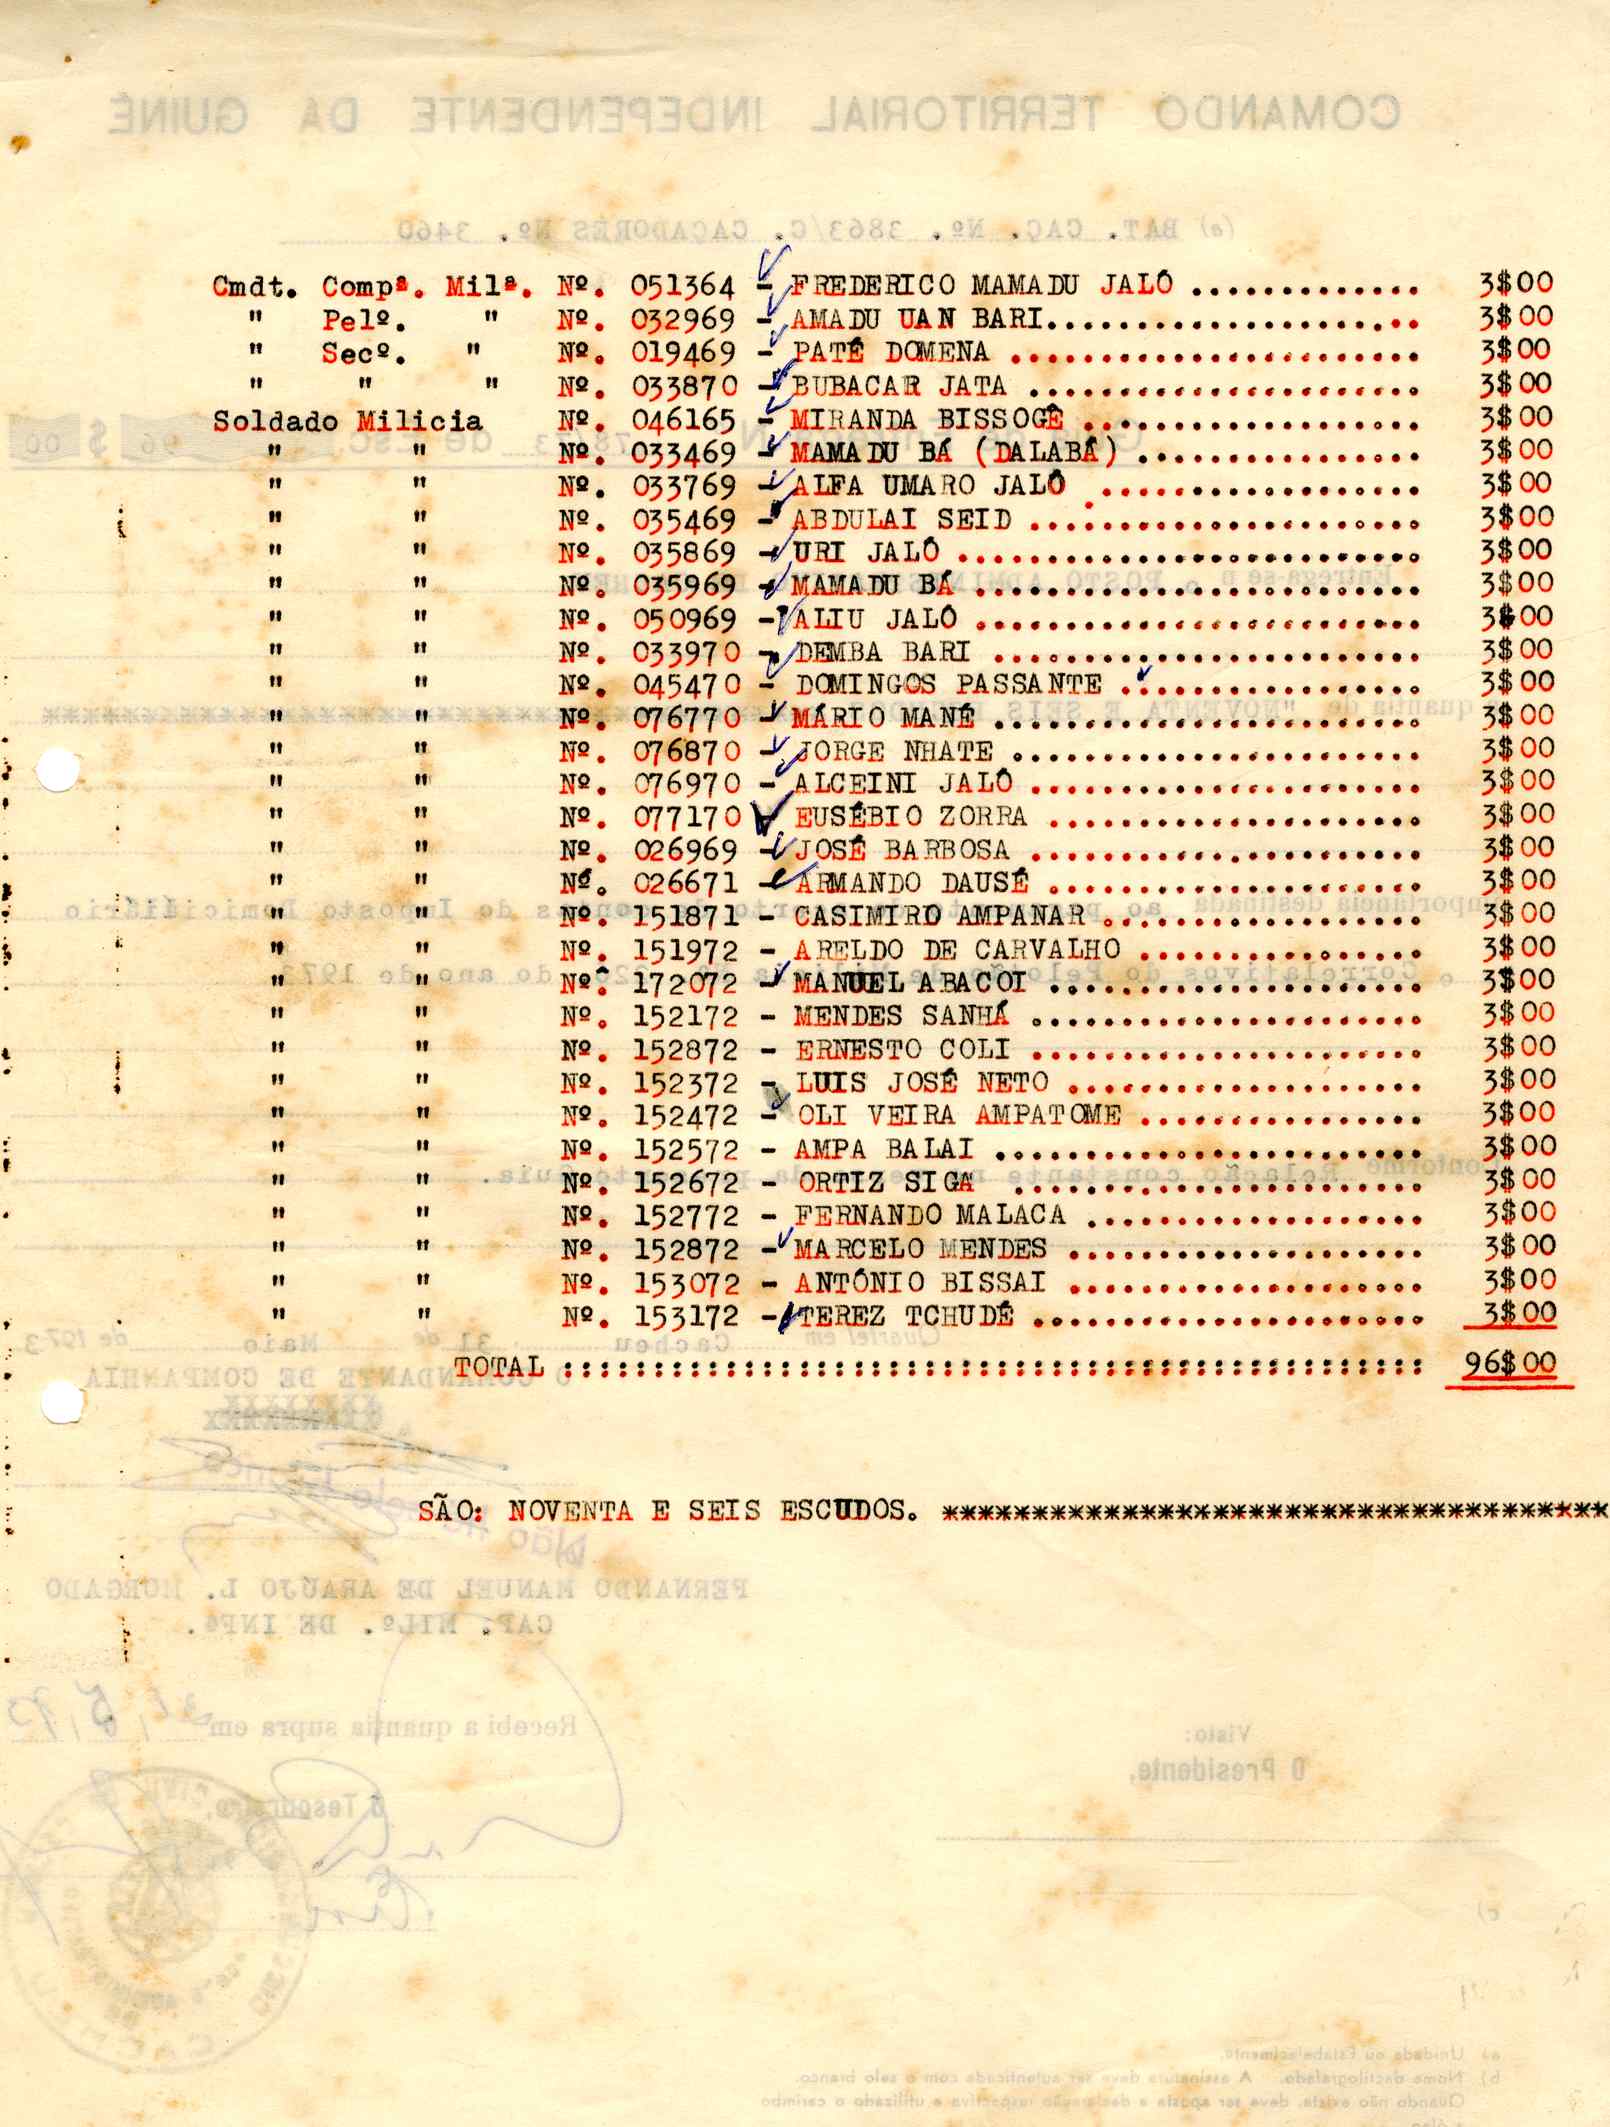 Cmdt. Compª. Milª. Nº. 051364 - FREDERICO MAMADU JALÔ ............. 3$00
" Pelº. " Nº. 032969 - AMADU UAN BARI..................... 3$00
" Secº. " Nº. 019469 - PATÉ DOMENA ....................... 3$00
" " " Nº. 033870 - BUBACAR JATA ...................... 3$00
Soldado Milicia Nº. 046165 - MIRANDA BISSOGÊ ................... 3$00
" " Nº. 033469 - MAMADU BÁ (DALABÁ) ................ 3$00
" " Nº. 033769 - ALFA UMARO JALÔ .................. 3$00
" " Nº. 035469 - ABDULAI SEID ...................... 3$00
" " Nº. 035869 - URI JALÔ .......................... 3$00
" " Nº. 035969 - MAMADU BÁ ......................... 3$00
" " Nº. 050969 - ALIU JALÔ ......................... 3$00
" " Nº. 033970 - DEMBA BARI ........................ 3$00
" " Nº. 045470 - DOMINGOS PASSANTE ................. 3$00
" " Nº. 076770 - MÁRIO MANÉ ........................ 3$00
" " Nº. 076870 - JORGE NHATE ....................... 3$00
" " Nº. 076970 - ALCEINI JALÔ ...................... 3$00
" " Nº. 077170 - EUSÉBIO ZORRA ..................... 3$00
" " Nº. 026969 - JOSÉ BARBOSA ...................... 3$00
" " Nº. 026671 - ARMANDO DAUSÉ ..................... 3$00
" " Nº. 151871 - CASIMIRO AMPANAR .................. 3$00
" " Nº. 151972 - ARELDO DE CARVALHO ................ 3$00
" " Nº. 172072 - MANUEL ABACOI ..................... 3$00
" " Nº. 152172 - MENDES SANHÁ ...................... 3$00
" " Nº. 152872 - ERNESTO COLI ...................... 3$00
" " Nº. 152372 - LUIS JOSÉ NETO .................... 3$00
" " Nº. 152472 - OLI VEIRA AMPATOME ................ 3$00
" " Nº. 152572 - AMPA BALAI ........................ 3$00
" " Nº. 152672 - ORTIZ SIGA ....................... 3$00
" " Nº. 152772 - FERNANDO MALACA ................... 3$00
" " Nº. 152872 - MARCELO MENDES .................... 3$00
" " Nº. 153072 - ANTÓNIO BISSAI .................... 3$00
" " Nº. 153172 - TEREZ TCHUDÉ ...................... 3$00
TOTAL :::::::::::::::::::::::::::::::::::::::::::::::: 96$00
SÃO: NOVENTA E SEIS ESCUDOS. *************************************